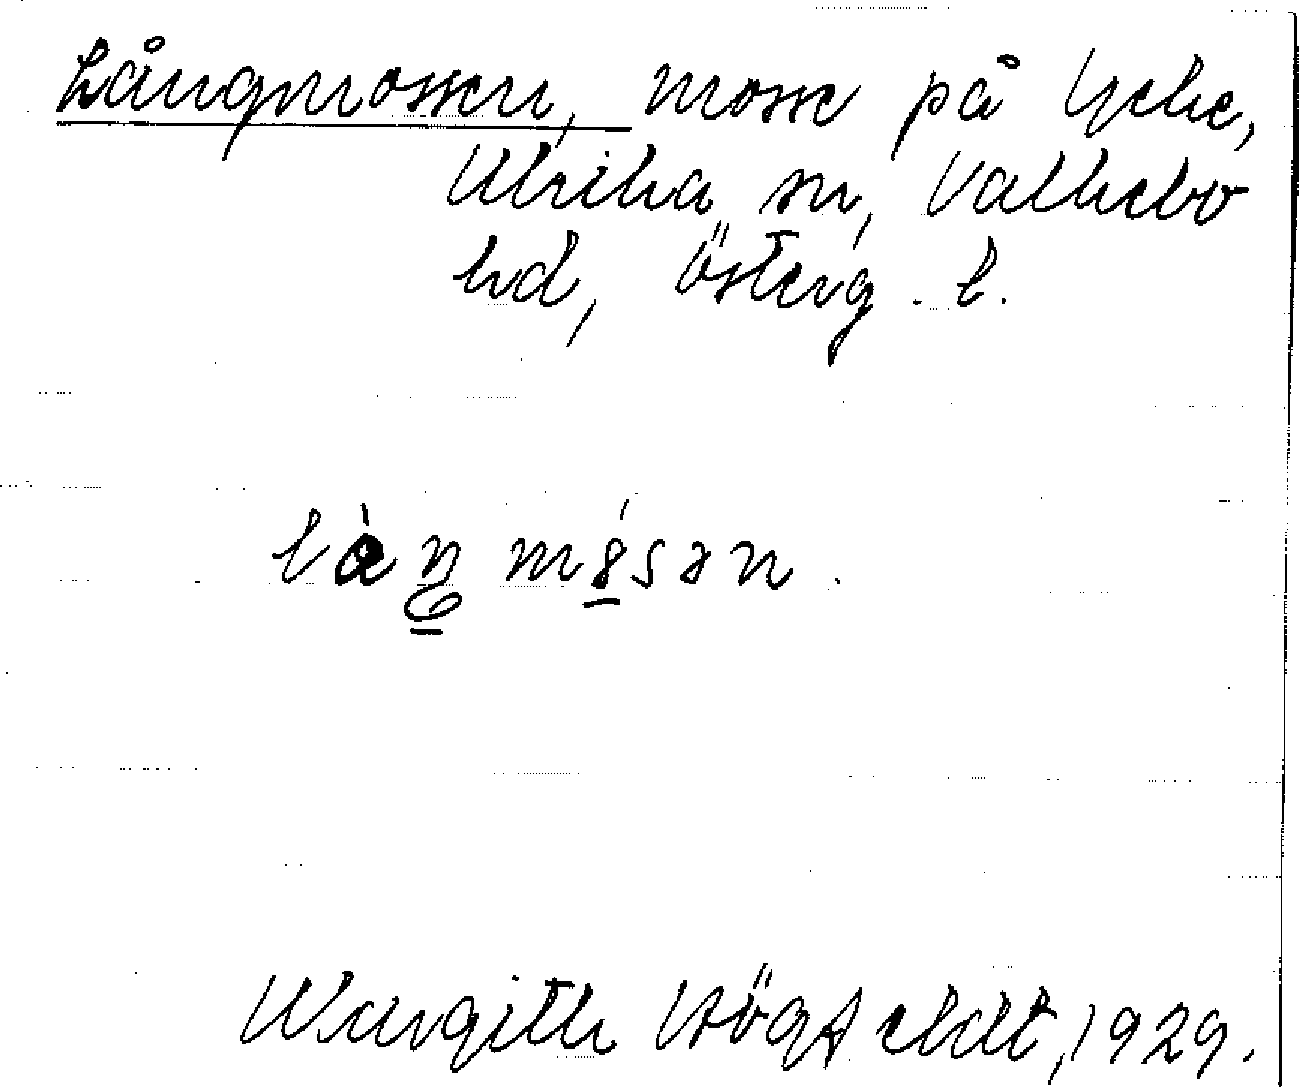 Långmossen, mosse på Lycke,
Ulrika sn, Valkebo
hd, Österg. l.
làŋ mósən.
Margith Högfeldt, 1929.